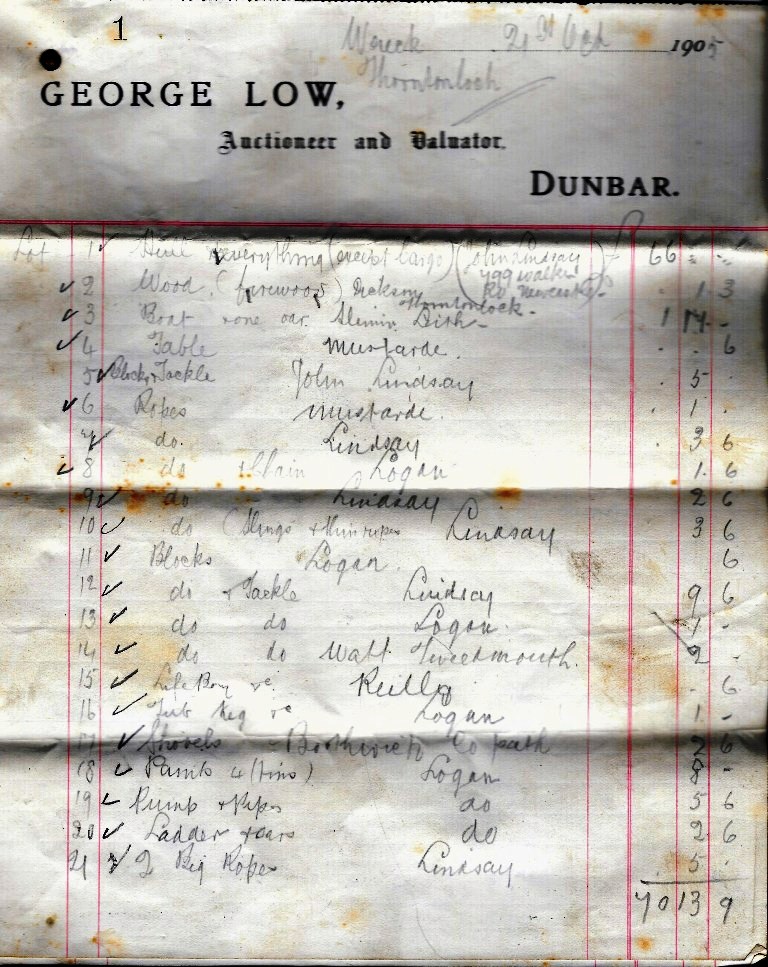 1
Wreck 21st Oct 1905
Thorntonloch
GEORGE LOW,
Auctioneer and Valuator.
DUNBAR.
Lot 1 Hull & everything (except cargo) (John Lindsay 66 " "
2 Wood (firewood) Dickson Thorntonlock - 1 3
3 Boat & one oar. 1 14 -
4 Table Mustarde . . 6
5 Block & Tackle John Lindsay . 5 .
6 Ropes Mustarde . 1 .
7 do. Lindsay 3 6
8 do & Chain Logan 1 6
9 do Lindsay 2 6
10 do (Slings & thin ropes Lindsay 3 6
11 Blocks Logan . 6
12 do & Tackle Lindsay 9 6
13 do do Logan . 1 -
14 do do Watt Tweedmouth. 2 -
15 Life Boy &c. Reilly . 6
16 Tub Keg &c Logan 1 -
17 Shovels Borthwick Co path 2 6
18 Paint 4 (tins) Logan 8 -
19 Pump & Pipes do 5 6
20 Ladder & oars do 2 6
21 2 Big Ropes Lindsay . 5 .
70 13 9